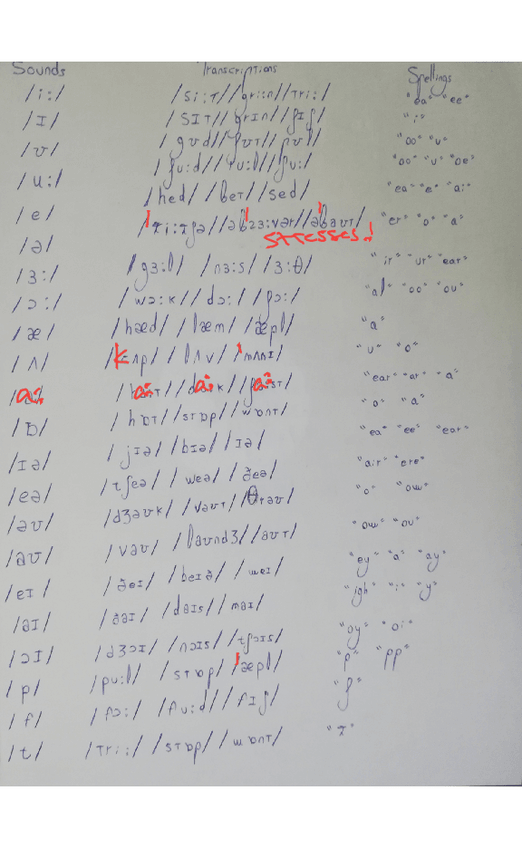 Sounds Transcriptions Spellings
/i:/ /si:t/ /gri:n/ /tri:/ "ea" "ee"
/ɪ/ /sɪt/ /grɪn/ /fɪʃ/ "i"
/ʊ/ /gʊd/ /fʊt/ /fʊl/ "oo" "u"
/u:/ /fu:d/ /ru:l/ /ʃu:/ "oo" "u" "oe"
/e/ /hed/ /bet/ /sed/ "ea" "e" "ai"
/ə/ /ˈti:tʃə/ /əbˈzɜ:vər/ /əˈbaʊt/ "er" "o" "a"
STRESSES!
/ɜ:/ /gɜ:l/ /nɜ:s/ /ɜ:θ/ "ir" "ur" "ear"
/ɔ:/ /wɔ:k/ /dɔ:/ /fɔ:/ "al" "oo" "ou"
/æ/ /hæd/ /læm/ /æpl/ "a"
/ʌ/ /kʌp/ /lʌv/ /ˈmʌnɪ/ "u" "o"
/ɑ:/ /hɑ:t/ /dɑ:k/ /fɑ:st/ "ear" "ar" "a"
/ɒ/ /hɒt/ /stɒp/ /wɒnt/ "o" "a"
/ɪə/ /jɪə/ /bɪə/ /ɪə/ "ea" "ee" "ear"
/eə/ /tʃeə/ /weə/ /ðeə/ "air" "ere"
/əʊ/ /dʒəʊk/ /vəʊt/ /θrəʊ/ "o" "ow"
/aʊ/ /vaʊ/ /laʊndʒ/ /aʊt/ "ow" "ou"
/eɪ/ /ðeɪ/ /beɪð/ /weɪ/ "ey" "a" "ay"
/aɪ/ /haɪ/ /daɪs/ /maɪ/ "igh" "i" "y"
/ɔɪ/ /dʒɔɪ/ /nɔɪs/ /tʃɔɪs/ "oy" "oi"
/p/ /pu:l/ /stɒp/ /ˈæpl/ "p" "pp"
/f/ /fɔ:/ /fu:d/ /fɪʃ/ "f"
/t/ /tri:/ /stɒp/ /wɒnt/ "t"